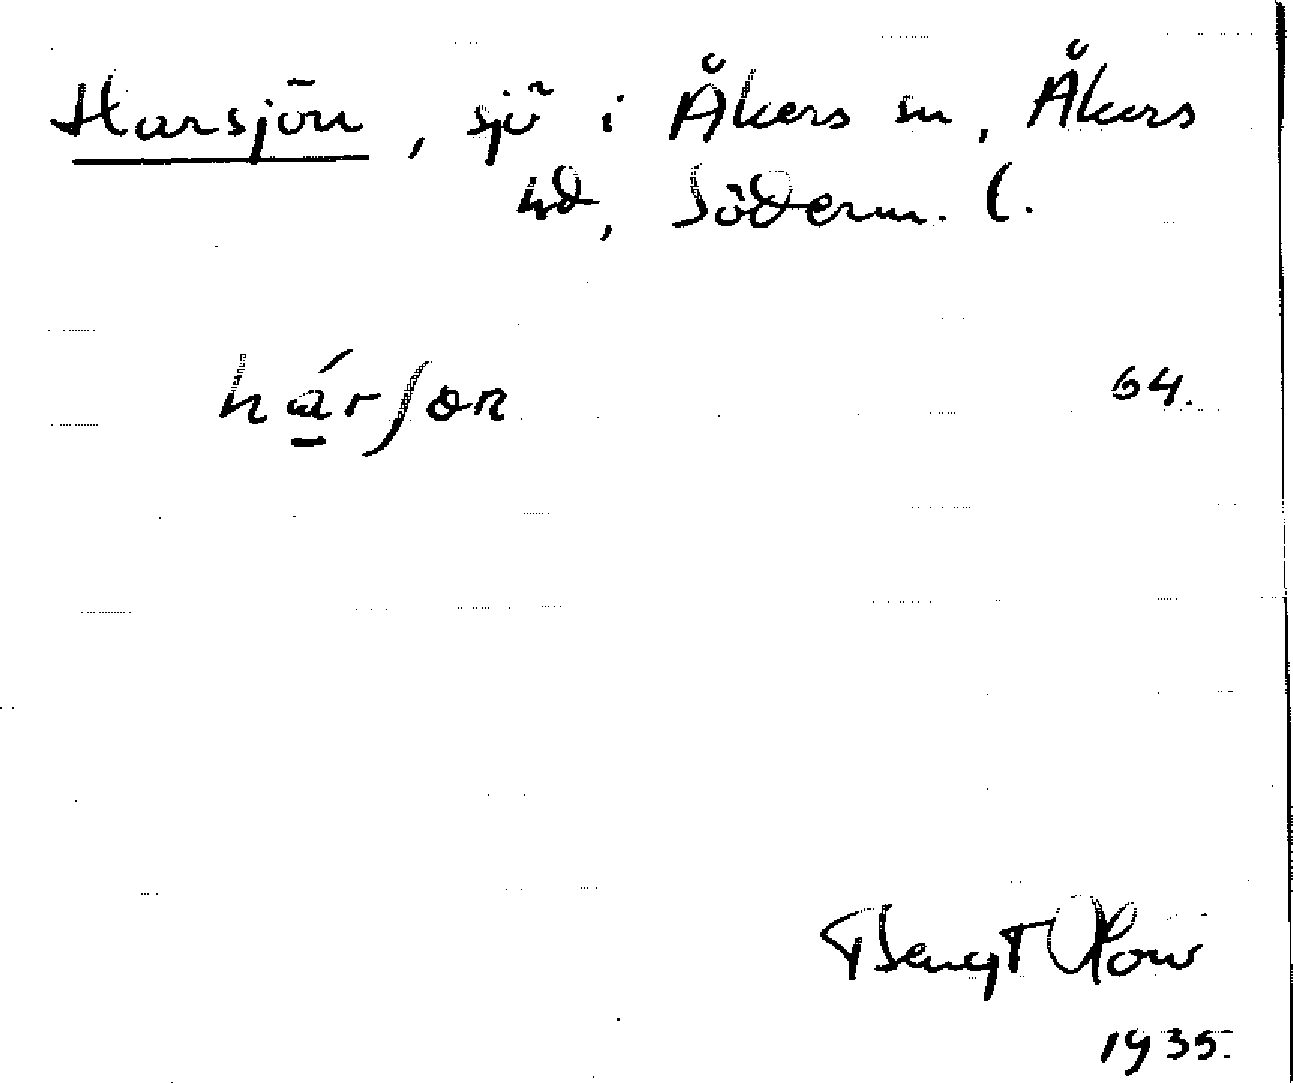 Harsjön, sjö i Åkers sn, Åkers
hd, Söderm. l.
hárʃøn 64.
Bengt
1935.